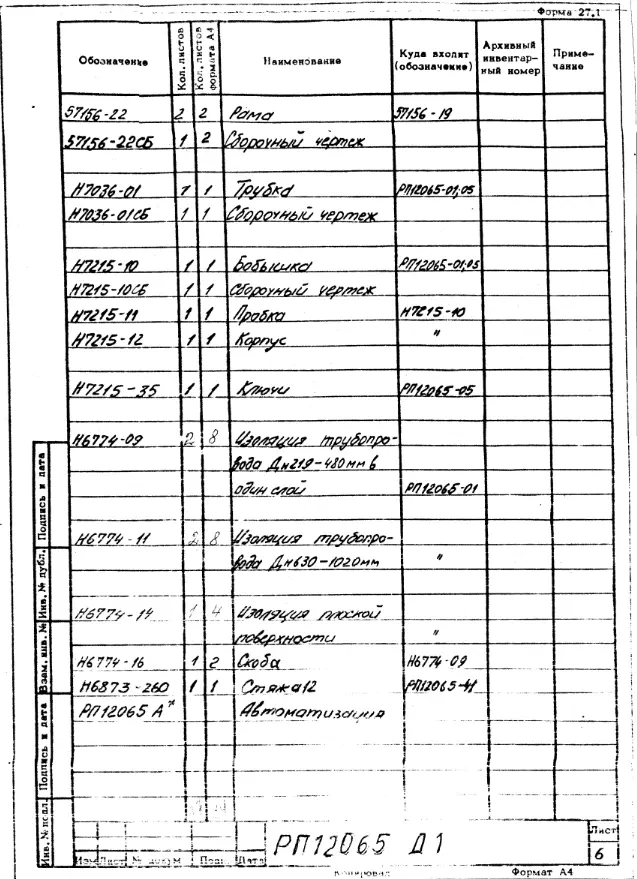 Форма 27.1
Обозначение Кол. листов Кол. листов формата А4 Наименование Куда входит (обозначение) Архивный инвентарный номер Примечание
57156-22 2 2 Рама 57156-19
57156-22СБ 1 2 Сборочный чертеж
Н7036-01 1 1 Трубка РП12065-01;05
Н7036-01СБ 1 1 Сборочный чертеж
Н7215-10 1 1 Бобышка РП12065-01;05
Н7215-10СБ 1 1 Сборочный чертеж
Н7215-11 1 1 Пробка Н7215-10
Н7215-12 1 1 Корпус "
Н7215-35 1 1 Ключи РП12065-05
Н6774-09 2 8 Изоляция трубопро-
вода Дн219-480мм в
один слой РП12065-01
Н6774-11 2 8 Изоляция трубопро-
вода Дн630-1020мм "
Н6774-14 1 4 Изоляция плоской
поверхности "
Н6774-16 1 2 Скоба Н6774-09
Н6873-260 1 1 Стяжка12
РП12065 А* Автоматизация
Инв.№ подл. Подпись и дата Взам. инв.№ Инв.№ дубл. Подпись и дата
РП12065 Д1
Лист
6
Изм Лист № докум Подп. Дата
Копировал Формат А4